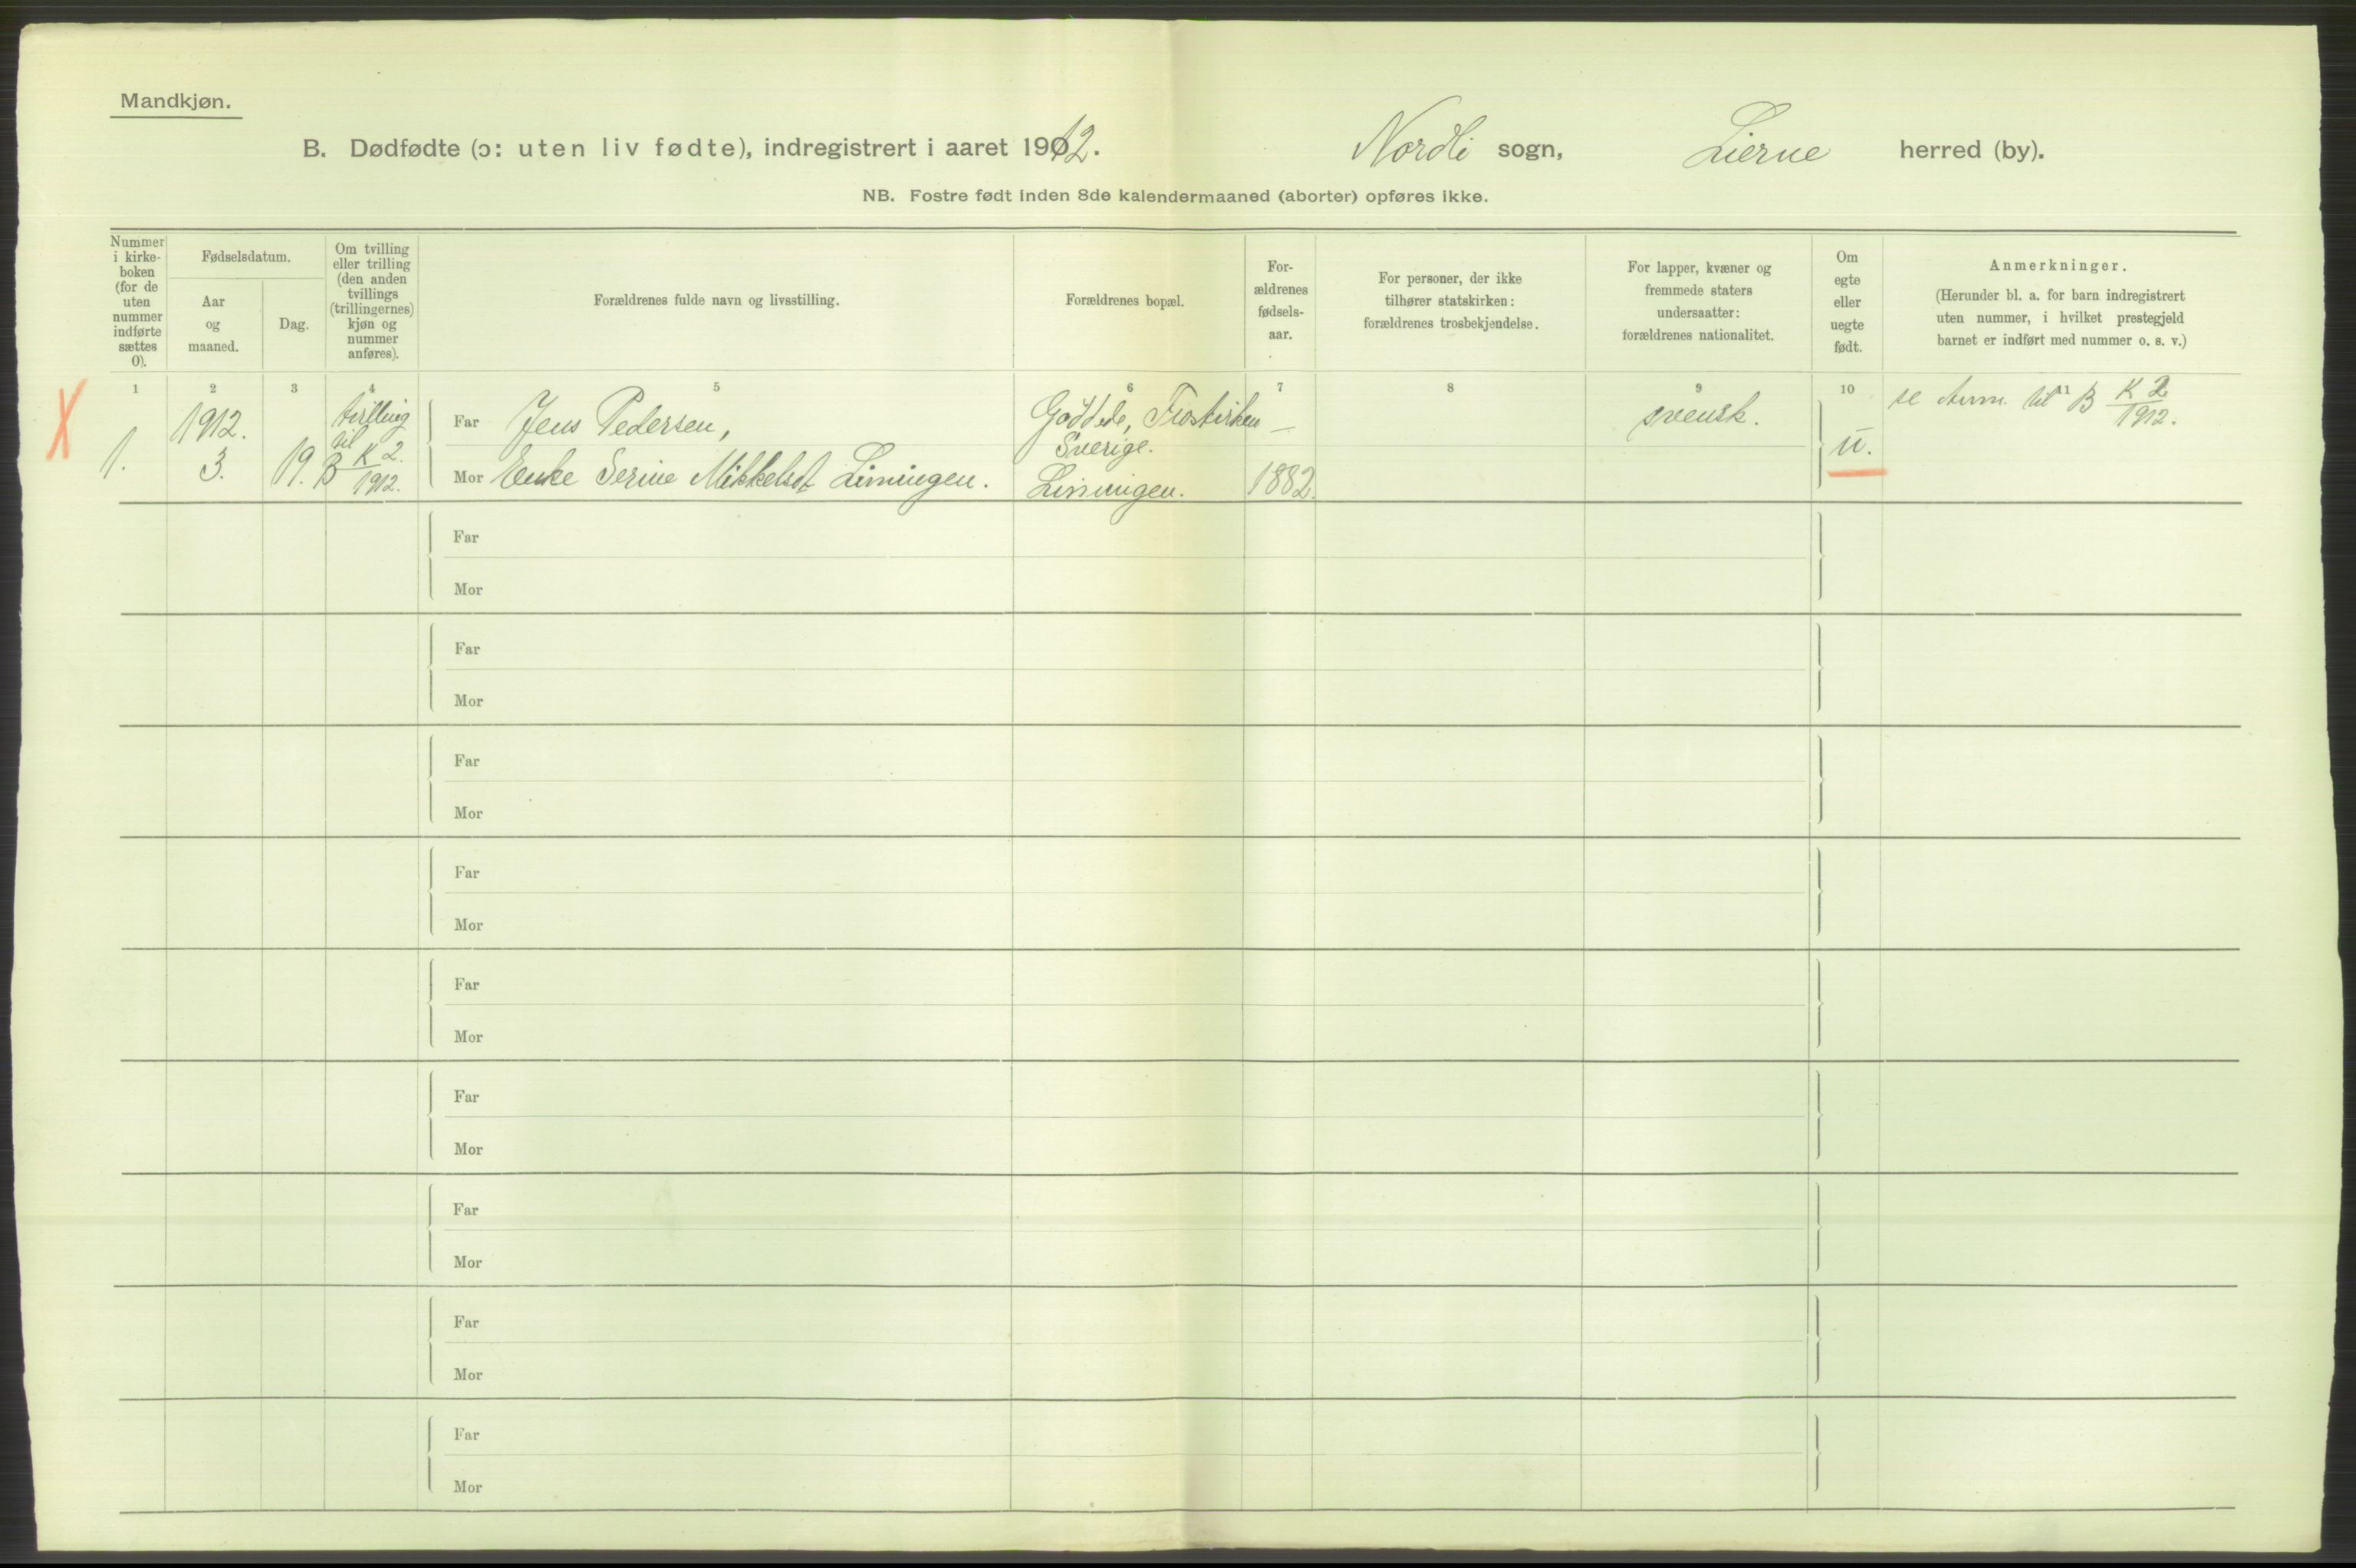 Mandkjøn.
B. Dødfødte (ɔ: uten liv fødte), indregistrert i aaret 1912. Nordli sogn, Lierne herred (by).
NB. Fostre født inden 8de kalendermaaned (aborter) opføres ikke.
Nummer
i kirke-
boken
(for de
uten
nummer
indførte
sættes
0).
Fødselsdatum.
Aar
og
maaned.
Dag.
Om tvilling
eller trilling
(den anden
tvillings
(trillingernes)
kjøn og
nummer
anføres).
Forældrenes fulde navn og livsstilling.
Forældrenes bopæl.
For-
ældrenes
fødsels-
aar.
For personer, der ikke
tilhører statskirken:
forældrenes trosbekjendelse.
For lapper, kvæner og
fremmede staters
undersaatter:
forældrenes nationalitet.
Om
egte
eller
uegte
født.
Anmerkninger.
(Herunder bl. a. for barn indregistrert
uten nummer, i hvilket prestegjeld
barnet er indført med nummer o. s. v.)
1 2 3 4 5 6 7 8 9 10 11
X
1.
1912.
3.
19.
tvilling
til
B K 2.
1912.
Far Jens Pedersen,
Mor Serine Mikkelsdt Limingen.
Gäddede,
Sverige.
Limingen.
—
1882.
svensk.
u.
se Anm. til B K 2
1912.
Far
Mor
Far
Mor
Far
Mor
Far
Mor
Far
Mor
Far
Mor
Far
Mor
Far
Mor
Far
Mor